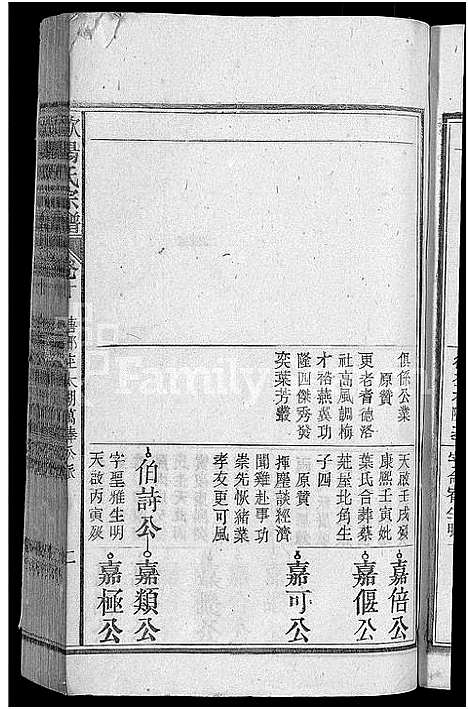 俱係公業
原贊
更老耆德洛
社高風調梅
才裕燕冀功
隆四傑秀發
奕葉芳叢
天啟壬戌歿
康熙壬寅妣
葉氏合葬蔡
茫屋北角生
子四
原贊
揮麈談經濟
聞雞赴事功
崇先恢緒業
孝友更可風
伯詩公
字聖雅生明
天啟丙寅歿
嘉倍公
嘉偃公
嘉可公
嘉類公
嘉極公
歐陽氏宗譜
二
Family